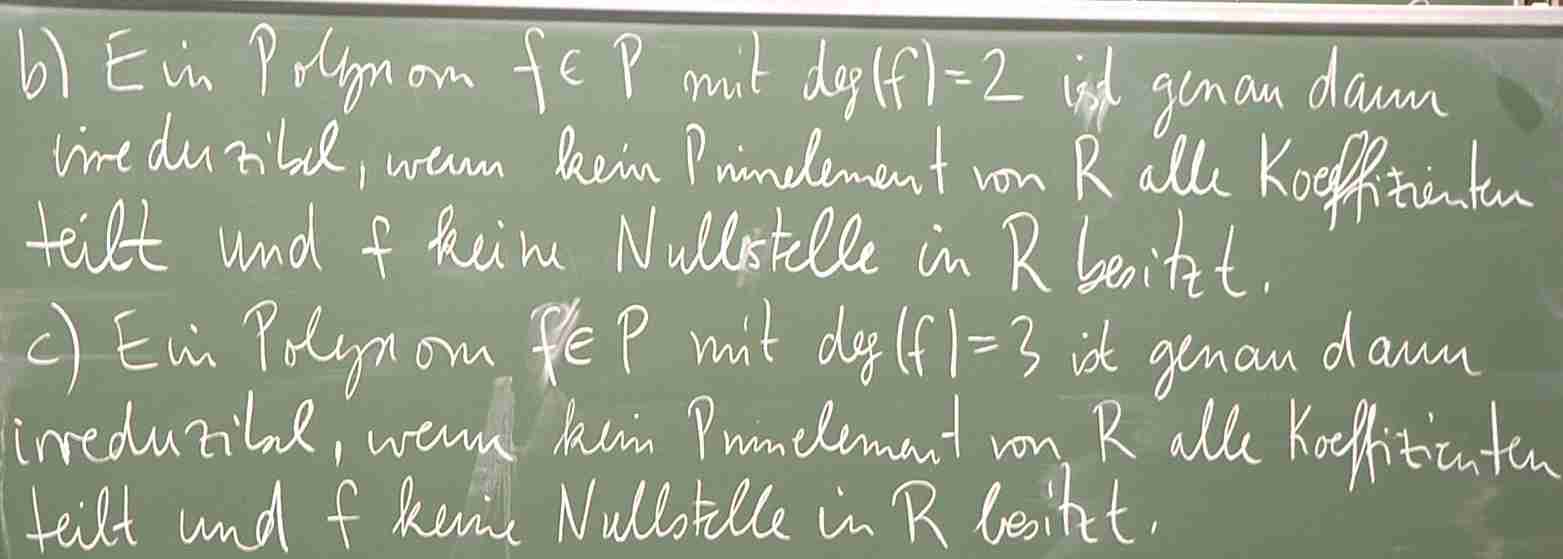 b) Ein Polynom f ∈ P mit deg(f) = 2 ist genau dann
irreduzibel, wenn kein Primelement von R alle Koeffizienten
teilt und f keine Nullstelle in R besitzt.
c) Ein Polynom f ∈ P mit deg(f) = 3 ist genau dann
irreduzibel, wenn kein Primelement von R alle Koeffizienten
teilt und f keine Nullstelle in R besitzt.